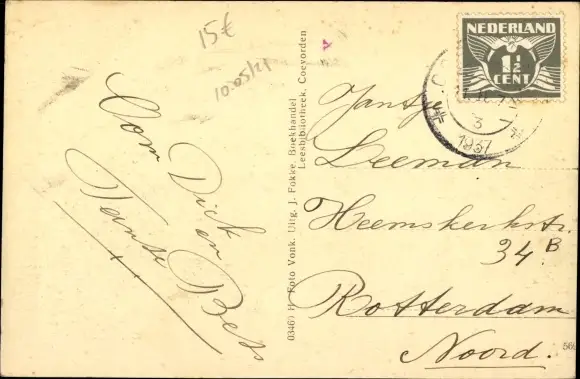 15€
10.05/21
Oom Dick
en
Tante Bets
03460 H. Foto Vonk. Uitg. J. Fokke, Boekhandel
Leesbibliotheek, Coevorden
NEDERLAND
1½
CENT
3
1937
Jantje
Leeman
Heemskerkstr.
34 B
Rotterdam
Noord.